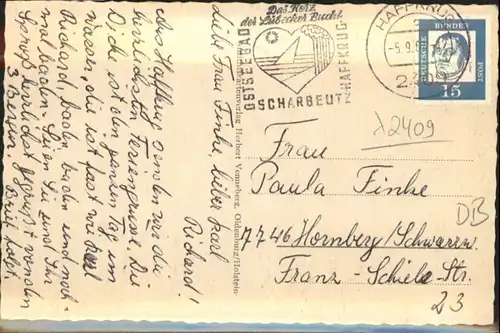 Das Herz
der Lübecker Bucht
OSTSEEBAD
SCHARBEUTZ
HAFFKRUG
HAFFKRUG
-5.9.6
DEUTSCHE
BUNDES
POST
15
λ2409
Liebe Frau Finke, lieber Karl
Richard!
Aus Haffkrug senden wir die
herzlichsten Feriengrüsse. Die
Oi ist den ganzen Tag im
Wasser, die ist fast wie Karl
Richard, baden, baden und noch-
mal baden. Seien Sie und Ihr
herzlichst gegrüßt von den
3 Brie
Herbert Venneberg, Oldenburg/Holstein
Frau
Paula Finke
7746 Hornberg/Schwarzw.
Franz-Schiele-Str.
23
DB